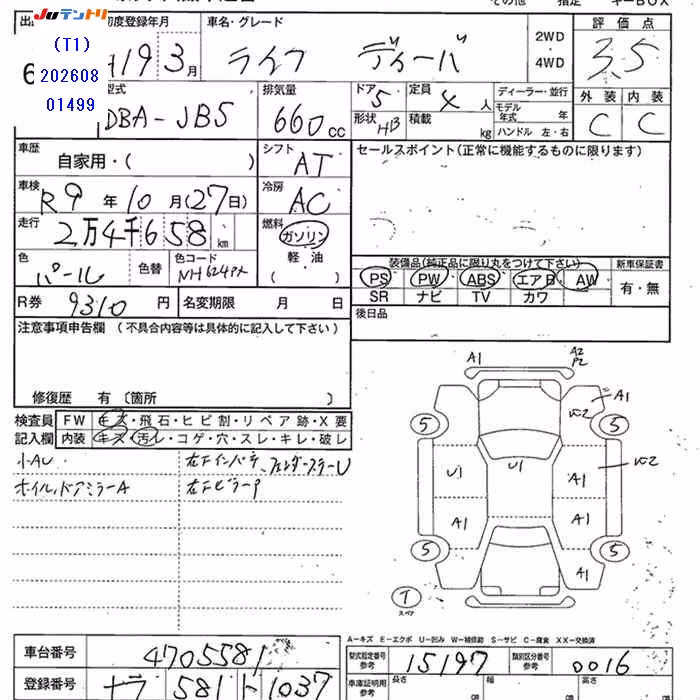 その他 指定 キーBOX
JUテントリ
(T1)
202608
01499
初度登録年月 車名・グレード 2WD・4WD 評価点
H19 3月 ライフ ディーバ 3.5
型式 排気量 ドア 定員 ディーラー・並行 外装 内装
DBA-JB5 660cc 5 4人 モデル年式 年 C C
形状 HB 積載 kg ハンドル 左・右
車歴 自家用・( ) シフト AT セールスポイント(正常に機能するものに限ります)
車検 R9年10月(27日) 冷房 AC
走行 2万4千658km 燃料 ガソリン
軽油
( )
色 パール 色替 色コード NH624PX
装備品(純正品に限り丸をつけて下さい) 新車保証書
PS PW ABS エアB AW 有・無
SR ナビ TV カワ
R券 9310円 名変期限 月 日 後日品
注意事項申告欄 (不具合内容等は具体的に記入して下さい)
修復歴 有〔箇所 〕
検査員記入欄 FW キズ・飛石・ヒビ割・リペア跡・X要
内装 キズ・汚レ・コゲ・穴・スレ・キレ・破レ
小AU
ホイル、ドアミラーA
A1 A2 P2
A1
5 5
U1 U1 A1
A1 A1
5 5 A1
T
スペア
A-キズ E-エクボ U-凹み W-補修跡 S-サビ C-腐食 XX-交換済
車台番号 4705581
型式指定番号 参考 15197 類別区分番号 参考 0016
登録番号 581 1037
車庫証明用 参考 長さ 幅 高さ